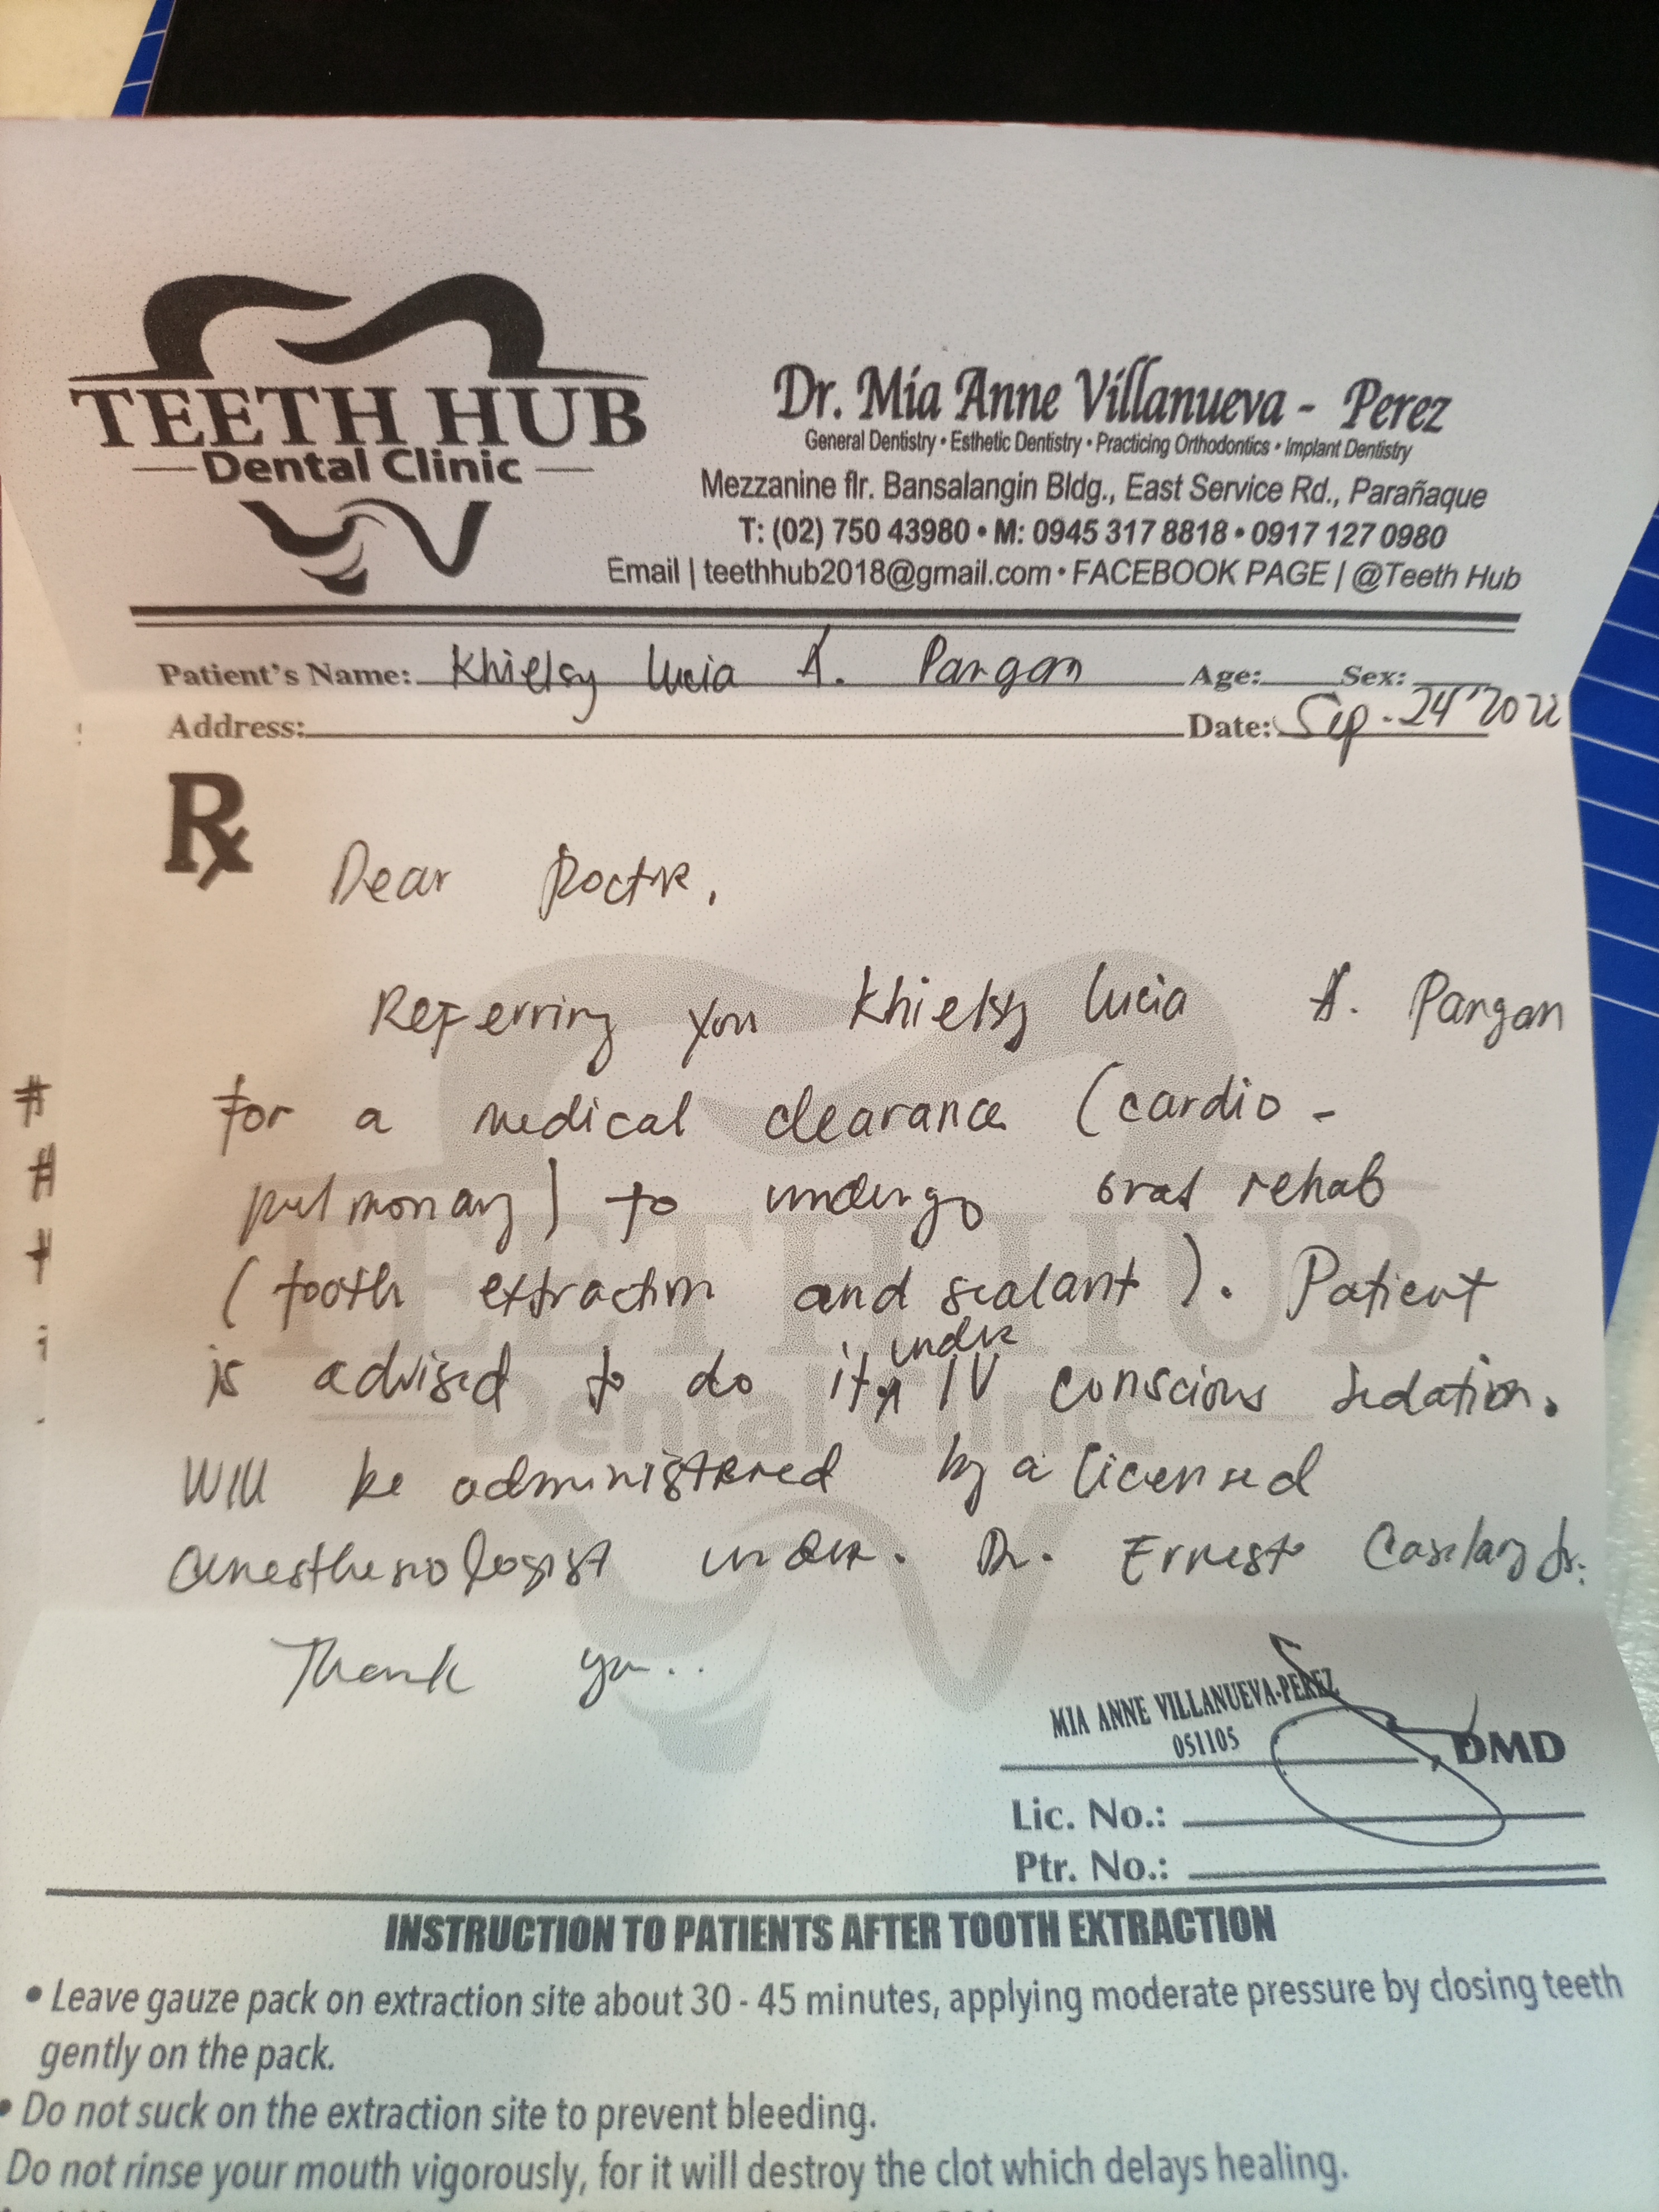 TEETH HUB
Dental Clinic
Dr. Mia Anne Villanueva - Perez
General Dentistry • Esthetic Dentistry • Practicing Orthodontics • Implant Dentistry
Mezzanine flr. Bansalangin Bldg., East Service Rd., Parañaque
T: (02) 750 43980 • M: 0945 317 8818 • 0917 127 0980
Email | teethhub2018@gmail.com • FACEBOOK PAGE | @Teeth Hub
Patient's Name: Khielsy Lucia A. Pangan Age: Sex:
Address: Date: Sep. 24 2022
Rx
Dear Doctor,
Referring you Khielsy Lucia A. Pangan
for a medical clearance (cardio -
pulmonary) to undergo oral rehab
(tooth extraction and sealant). Patient
is advised to do it under IV conscious sedation.
Will be administered by a licensed
anesthesiologist under. Dr. Ernesto Jr.
Thank you..
MIA ANNE VILLANUEVA-PEREZ
051105
, DMD
Lic. No.:
Ptr. No.:
INSTRUCTION TO PATIENTS AFTER TOOTH EXTRACTION
• Leave gauze pack on extraction site about 30 - 45 minutes, applying moderate pressure by closing teeth
gently on the pack.
• Do not suck on the extraction site to prevent bleeding.
Do not rinse your mouth vigorously, for it will destroy the clot which delays healing.